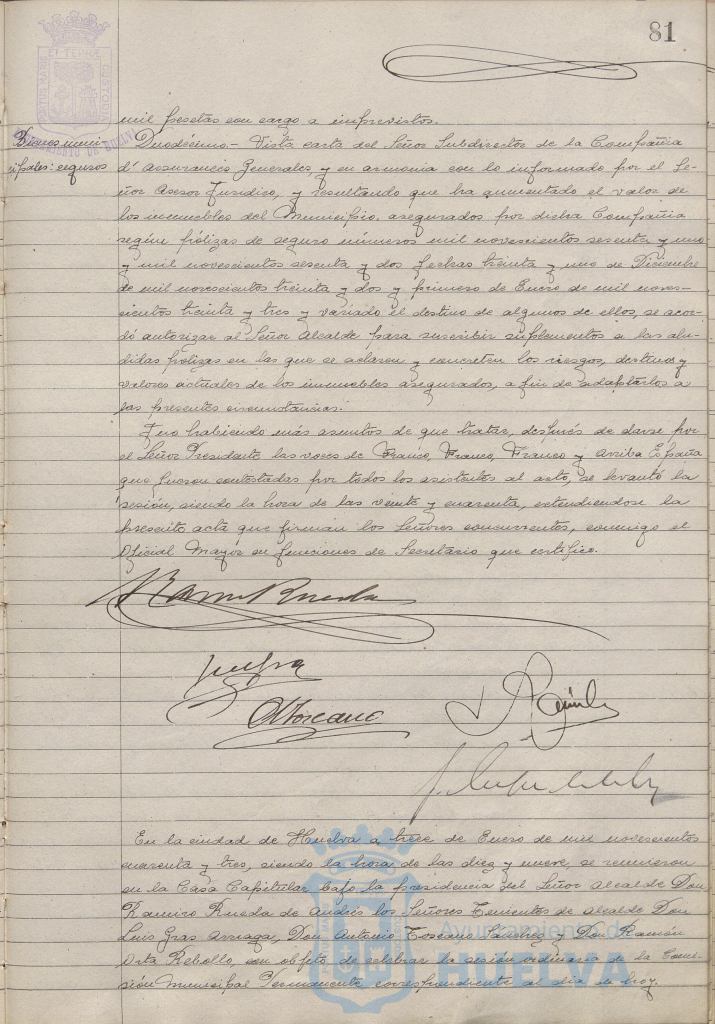 81
PORTUS MARIS ET TERRÆ CUSTODIA
AYUNTAMIENTO DE HUELVA
mil pesetas con cargo a imprevistos.
Bienes muni-
cipales: seguros
Duodécimo.- Vista carta del Señor Subdirector de la Compañia
d'Assurances Generales, y en armonia con lo informado por el Se-
ñor Asesor Juridico, y resultando que ha aumentado el valor de
los inmuebles del Municipio, asegurados por dicha Compañia
según pólizas de seguro números mil novescientos sesenta y uno
y mil novescientos sesenta y dos fechas treinta y uno de Diciembre
de mil novescientos treinta y dos y primero de Enero de mil noves-
cientos treinta y tres y variado el destino de algunos de ellos, se acor-
dó autorizar al Señor Alcalde para suscribir suplementos a las alu-
didas pólizas en las que se aclaren y concreten los riesgos, destinos y
valores actuales de los inmuebles asegurados, a fin de adaptarlos a
las presentes circunstancias.
Y no habiendo más asuntos de que tratar, después de darse por
el Señor Presidente las voces de Franco, Franco, Franco y Arriba España
que fueron contestadas por todos los asistentes al acto, se levantó la
sesión, siendo la hora de las veinte y cuarenta, extendiendose la
presente acta que firman los Señores concurrentes, conmigo el
Oficial Mayor en funciones de Secretario que certifico.
Ramiro Rueda
A Toscano
En la ciudad de Huelva a trece de Enero de mil novescientos
cuarenta y tres, siendo la hora de las diez y nueve, se reunieron
en la Casa Capitular bajo la presidencia del Señor Alcalde Don
Ramiro Rueda de Andrés los Señores Tenientes de Alcalde Don
Luis Gras Arruga, Don Antonio Toscano y Don Ramón
Orta Rebollo, con objeto de celebrar la sesión ordinaria de la Comi-
sión Municipal Permanente correspondiente al dia de hoy.
Ayuntamiento de
HUELVA